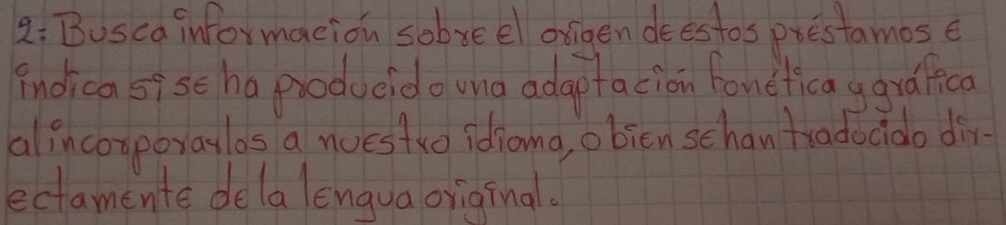 2: Busca información sobre el origen de estos préstamos e
indica si se ha producido una adaptación fonética y gráfica
al incorporarlos a nuestro idioma, o bien se han traducido dir-
ectamente de la lengua original.